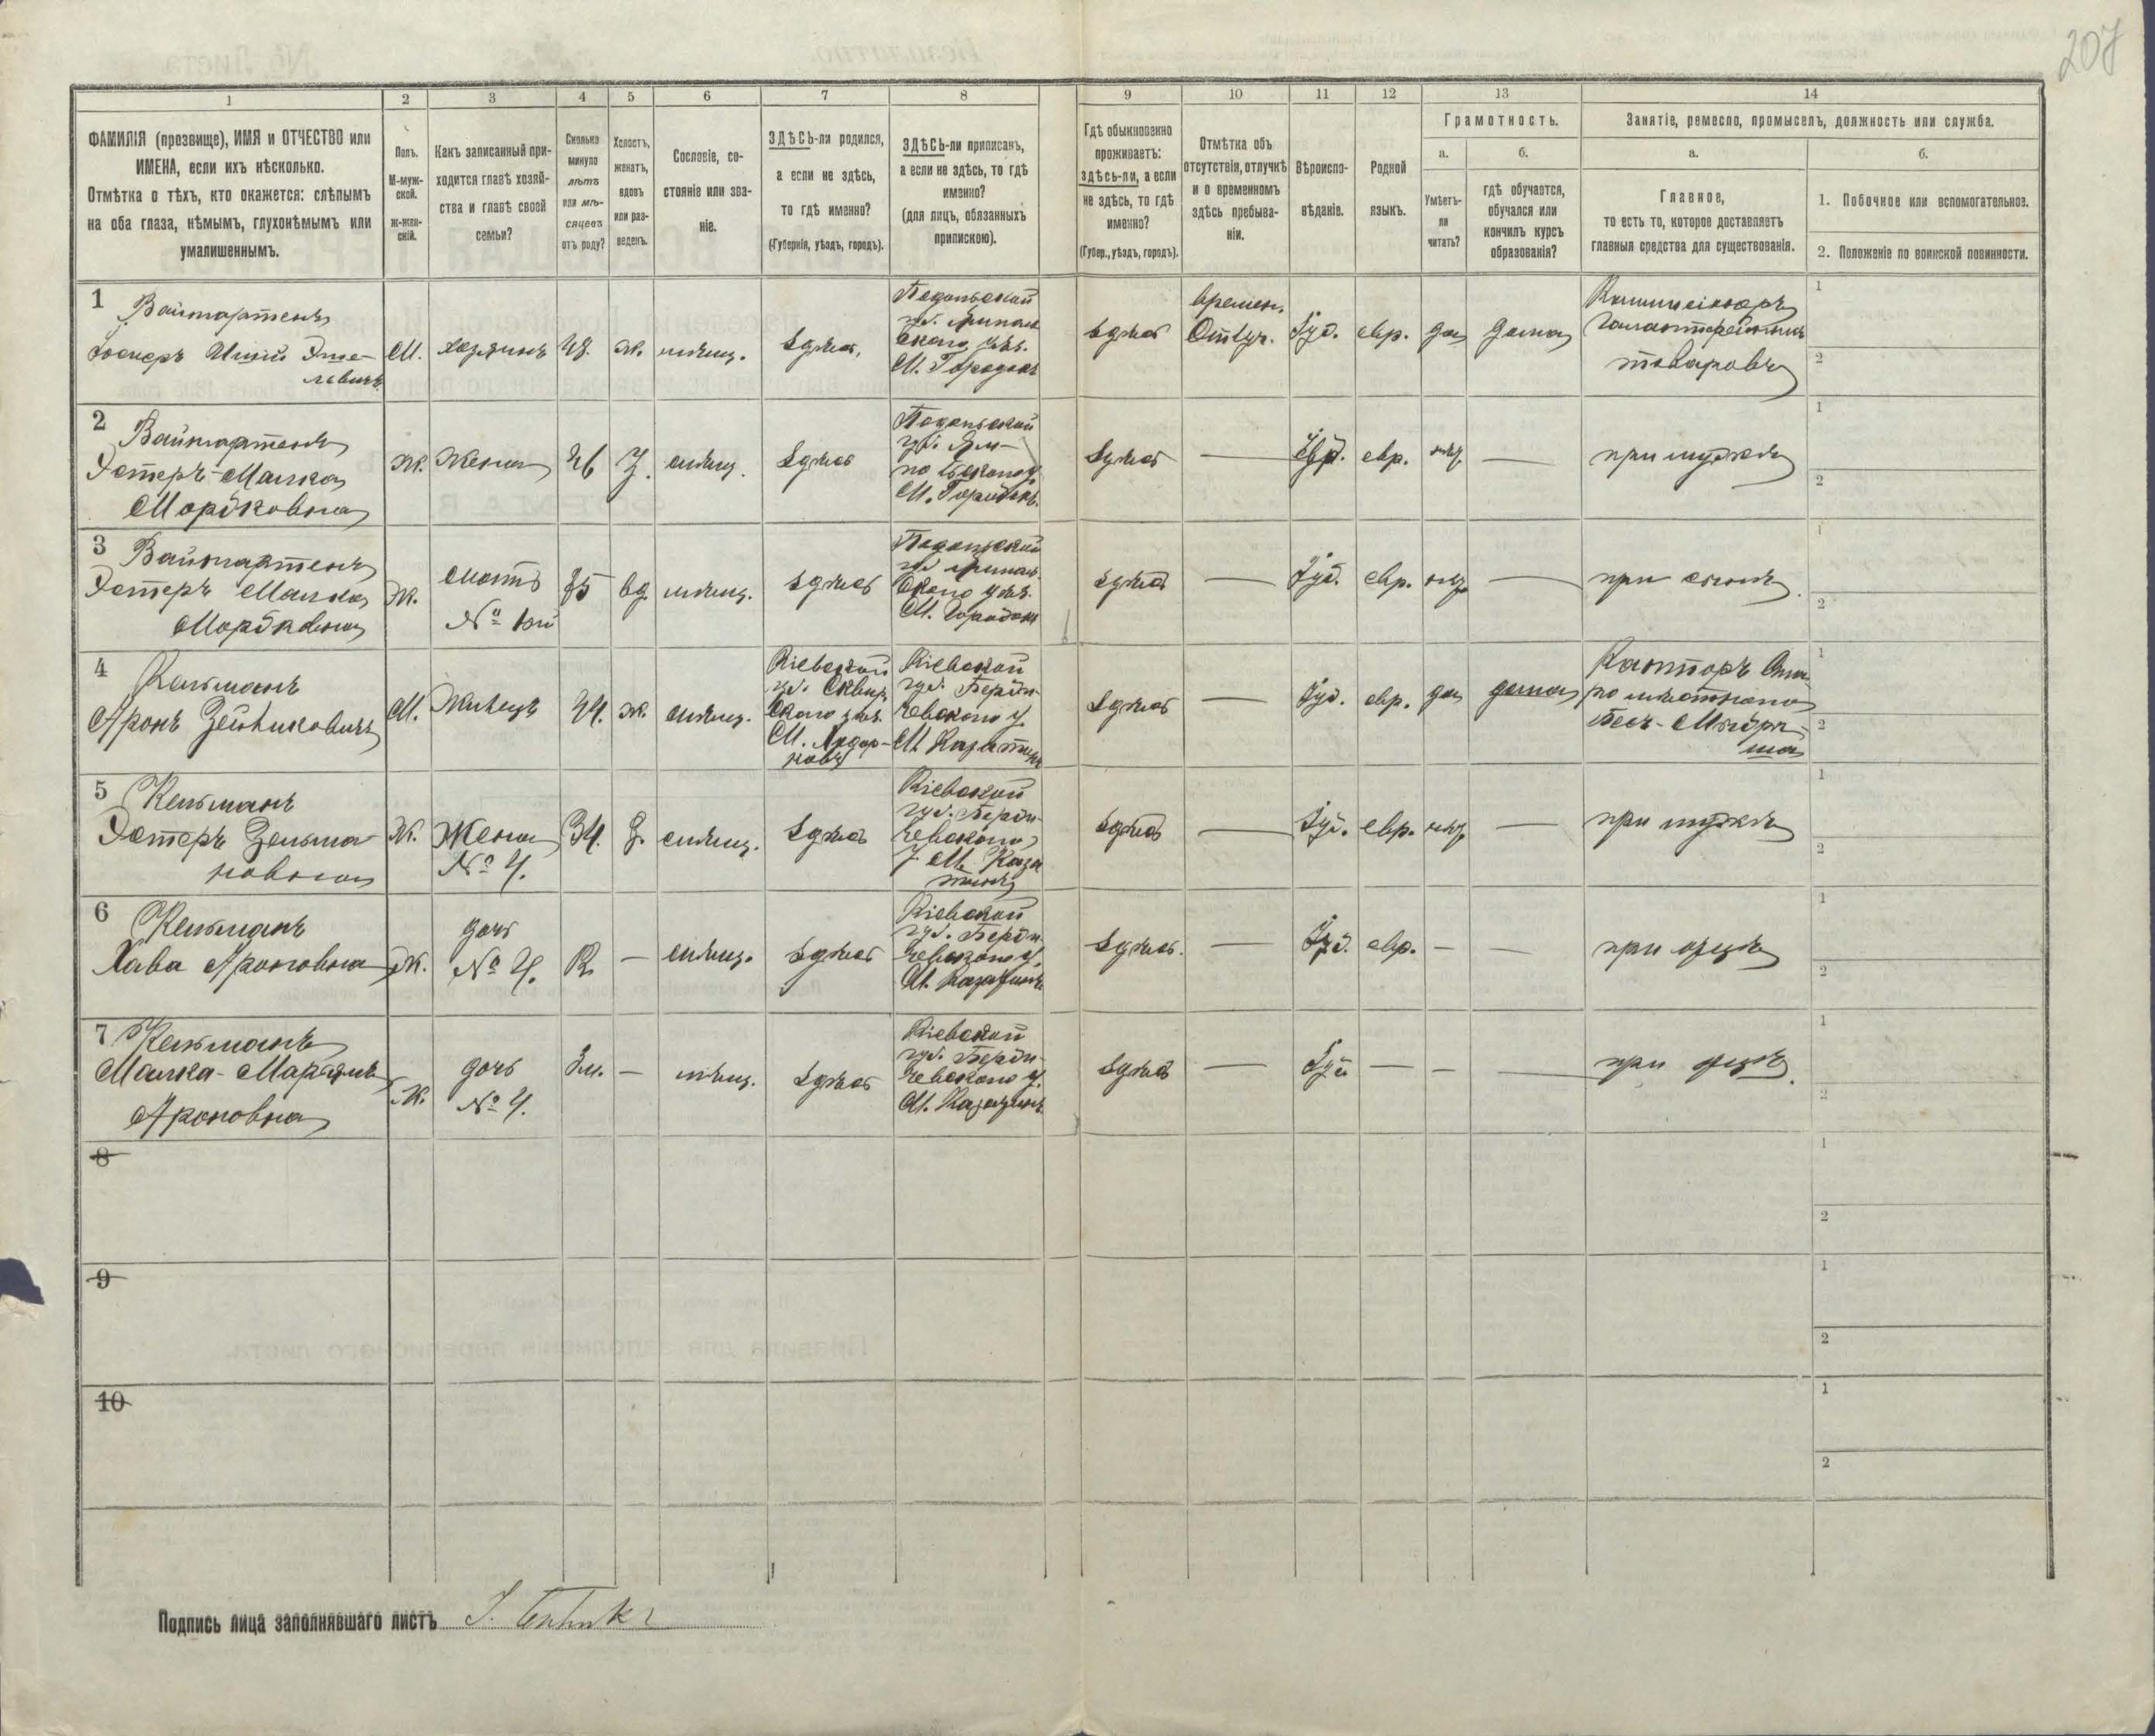 207
1
2
3
4
5
6
7
8
9
10
11
12
13
14
ФАМИЛІЯ (прозвище), ИМЯ и ОТЧЕСТВО или
ИМЕНА, если ихъ нѣсколько.
Отмѣтка о тѣхъ, кто окажется: слѣпымъ
на оба глаза, нѣмымъ, глухонѣмымъ или
умалишеннымъ.
Полъ.
М-муж-
ской.
Ж-жен-
скій.
Какъ записанный при-
ходится главѣ хозяй-
ства и главѣ своей
семьи?
Сколько
минуло
лѣтъ
или мѣ-
сяцевъ
отъ роду?
Холостъ,
женатъ,
вдовъ
или раз-
веденъ.
Сословіе, со-
стояніе или зва-
ніе.
ЗДѢСЬ-ли родился,
а если не здѣсь,
то гдѣ именно?
(Губернія, уѣздъ, городъ).
ЗДѢСЬ-ли приписанъ,
а если не здѣсь, то гдѣ
именно?
(для лицъ, обязанныхъ
припискою).
Гдѣ обыкновенно
проживаетъ:
здѣсь-ли, а если
не здѣсь, то гдѣ
именно?
(Губер., уѣздъ, городъ).
Отмѣтка объ
отсутствіи, отлучкѣ
и о временномъ
здѣсь пребыва-
ніи.
Вѣроиспо-
вѣданіе.
Родной
языкъ.
Грамотность.
а.
Умѣетъ-
ли
читать?
б.
гдѣ обучается,
обучался или
кончилъ курсъ
образованія?
Занятіе, ремесло, промыселъ, должность или служба.
а.
Главное,
то есть то, которое доставляетъ
главныя средства для существованія.
б.
1. Побочное или вспомогательное.
2. Положеніе по воинской повинности.
1 Вайнгартенъ
М. хозяинъ ж. мѣщ. здѣсь
Подольской
губ.
уѣз.
М. Городокъ
здѣсь времен. Отлуч. Іуд. евр. да дома
товаровъ
1
2
2 Вайнгартенъ
Эстеръ-Малка
Мордковна
ж. Жена 46 З. мѣщ. здѣсь
Подольской
губ. Ям-
М. Городокъ.
здѣсь — евр. нѣт — при мужѣ
1
2
3 Вайнгартенъ
Эстеръ Малка
Мордковна
Ж. мать
№ 1ый
75 вд. мѣщ. здѣсь
Подольской
губ.
уѣз.
М. Городокъ
здѣсь — Іуд. евр. нѣт — при сынѣ.
1
2
4 Кельманъ
Аронъ
М. Жилецъ 44. ж. мѣщ.
Кіевской
губ. Сквир-
скаго уѣз.
Кіевской
губ. Берди-
чевскаго у.
М. Казатинъ
здѣсь — Іуд. евр. да дома
Канторъ
Бесъ-Мидра-
ша
1
2
5 Кельманъ
Эстеръ Зельма-
новна
Ж. Жена
№ 4.
34. З. мѣщ. здѣсь
Кіевской
губ. Берди-
чевскаго
у. М. Каза
тинъ
здѣсь — Іуд. евр. нѣт — при мужѣ
1
2
6 Кельманъ
Хава Ароновна
Ж. дочь
№ 4.
— мѣщ. здѣсь
Кіевской
губ. Берди-
чевскаго у.
М. Казатинъ
здѣсь. — Іуд. евр. — — при отцѣ
1
2
7 Кельманъ
Малка-Марьямъ
Ароновна
Ж. дочь
№ 4.
— мѣщ. здѣсь
Кіевской
губ. Берди-
чевскаго у.
М. Казатинъ
здѣсь — Іуд — — — при отцѣ.
1
2
8
1
2
9
1
2
10
1
2
Подпись лица заполнявшаго листъ